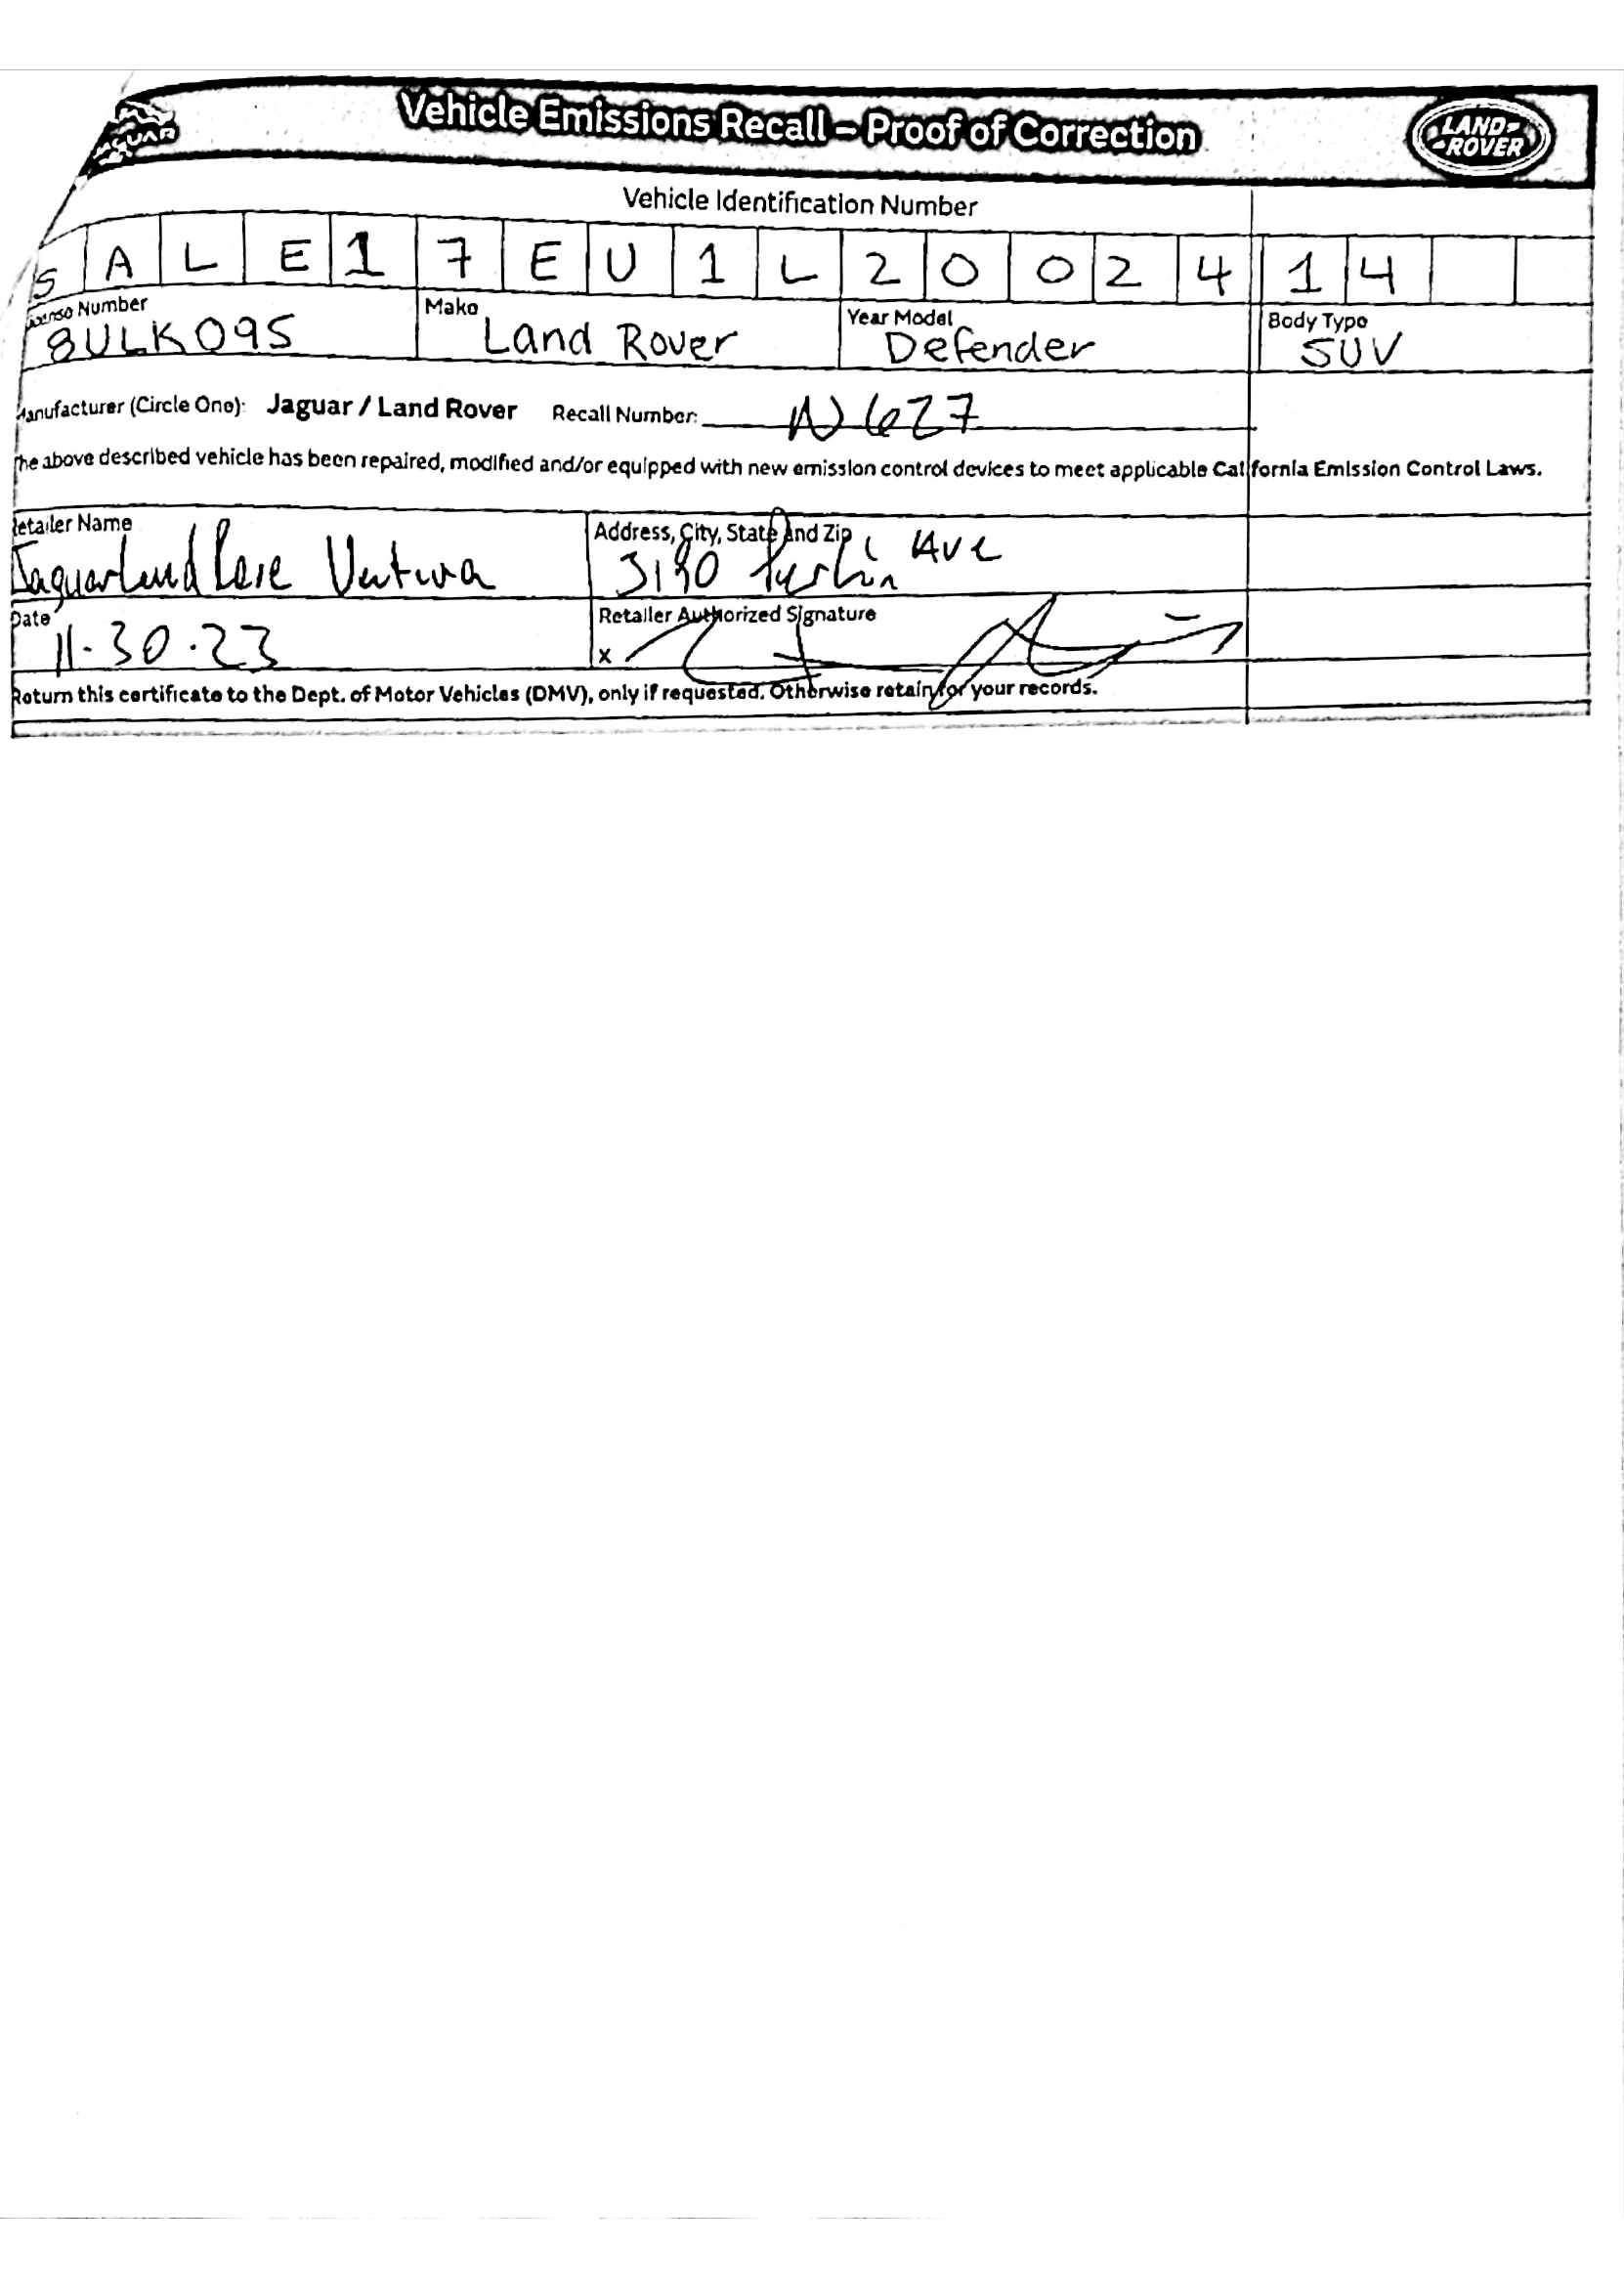 JAGUAR
Vehicle Emissions Recall – Proof of Correction
LAND-
-ROVER
Vehicle Identification Number
S A L E 1 7 E U 1 L 2 0 0 2 4 1 4
License Number Make Year Model Body Type
8ULK095 Land Rover Defender SUV
Manufacturer (Circle One): Jaguar / Land Rover Recall Number: N627
The above described vehicle has been repaired, modified and/or equipped with new emission control devices to meet applicable California Emission Control Laws.
Retailer Name Address, City, State and Zip
Jaguar Land Ventura 3190 Ave
Date Retailer Authorized Signature
11-30-23 x
Return this certificate to the Dept. of Motor Vehicles (DMV), only if requested. Otherwise retain for your records.